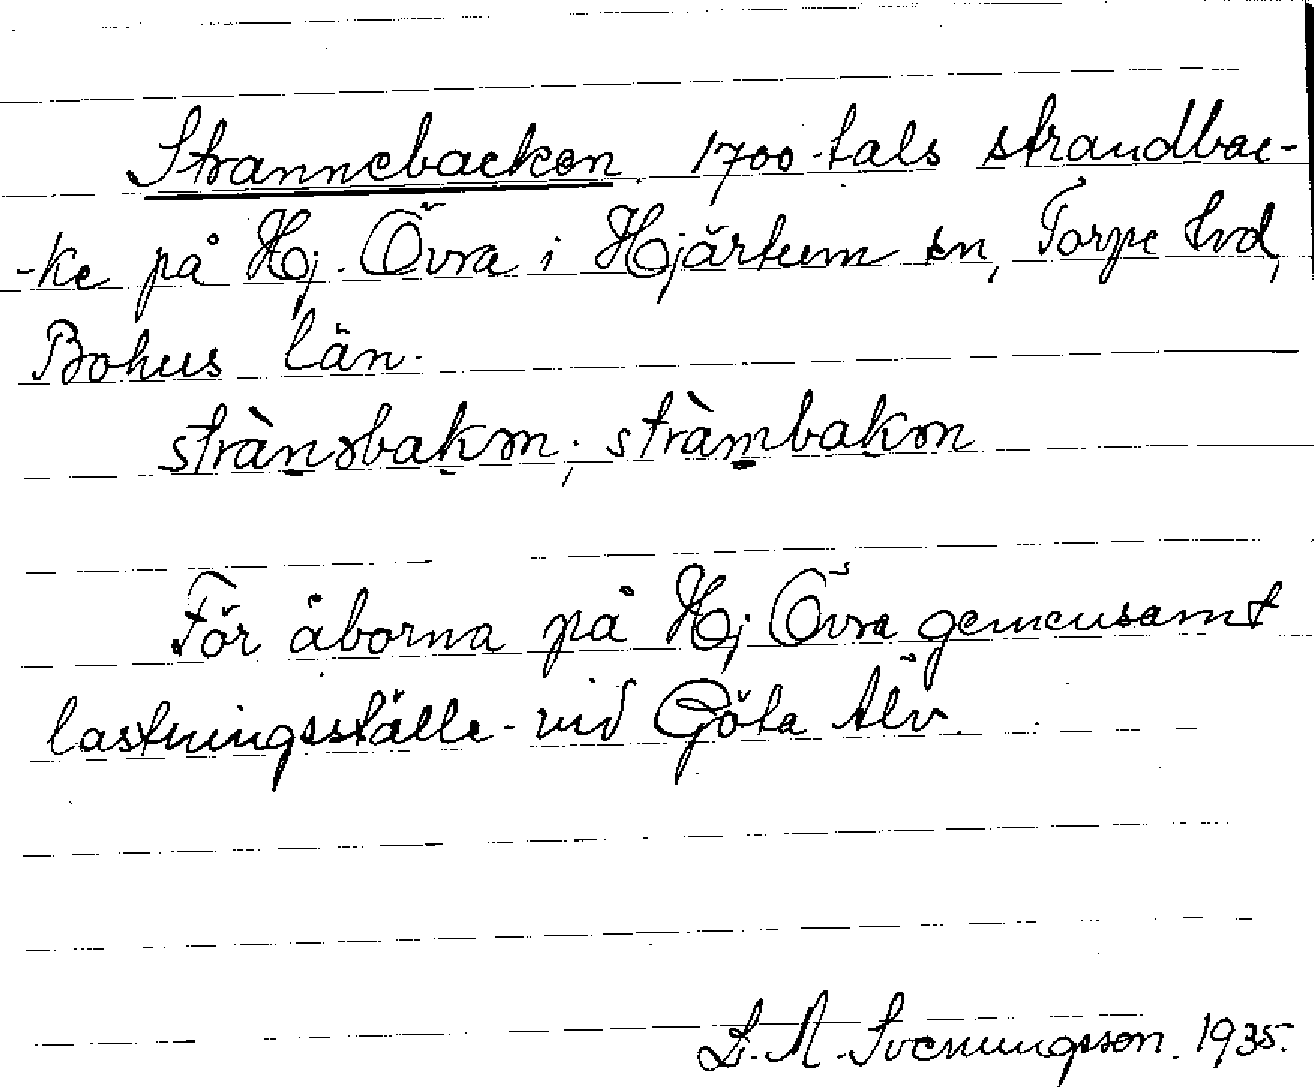 Strannebacken 1700-tals strandbac-
-ke på Hj. Övra i Hjärtum sn, Torpe hrd,
Bohus län.
strànəbakən; stràmbakən
För åborna på Hj Övra gemensamt
lastningsställe vid Göta Älv.
D. A. Svenungsson. 1935.